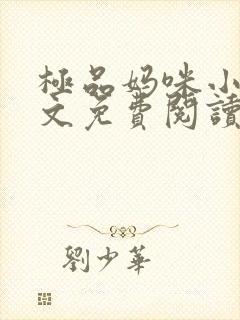 極品妈咪小
文免費閱讀
劉少華